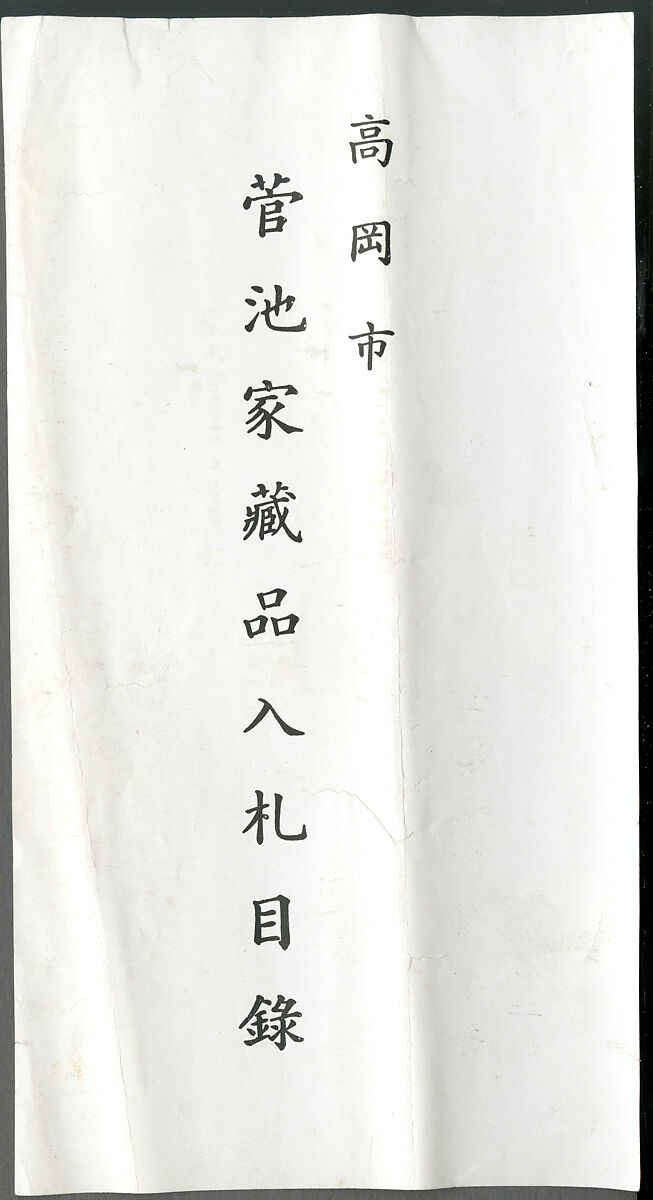 高岡市
菅池家藏品入札目錄